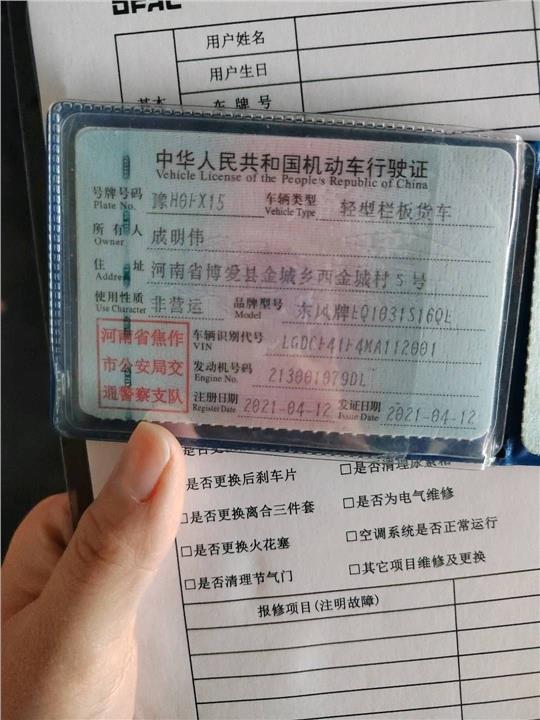 DFAC
用户姓名
用户生日
基本
车牌号
中华人民共和国机动车行驶证
Vehicle License of the People's Republic of China
号牌号码 豫H0FX15 车辆类型 轻型栏板货车
Plate No. Vehicle Type
所有人 成明伟
Owner
住址 河南省博爱县金城乡西金城村5号
Address
使用性质 非营运 品牌型号 东风牌EQ1031S16QE
Use Character Model
河南省焦作
市公安局交
通警察支队
车辆识别代号 LGDCF41F4MA112001
VIN
发动机号码 213001079DL
Engine No.
注册日期 2021-04-12 发证日期 2021-04-12
Register Date Issue Date
□是否更换后刹车片
□是否更换离合三件套 □是否为电气维修
□是否更换火花塞 □空调系统是否正常运行
□是否清理节气门 □其它项目维修及更换
报修项目(注明故障)